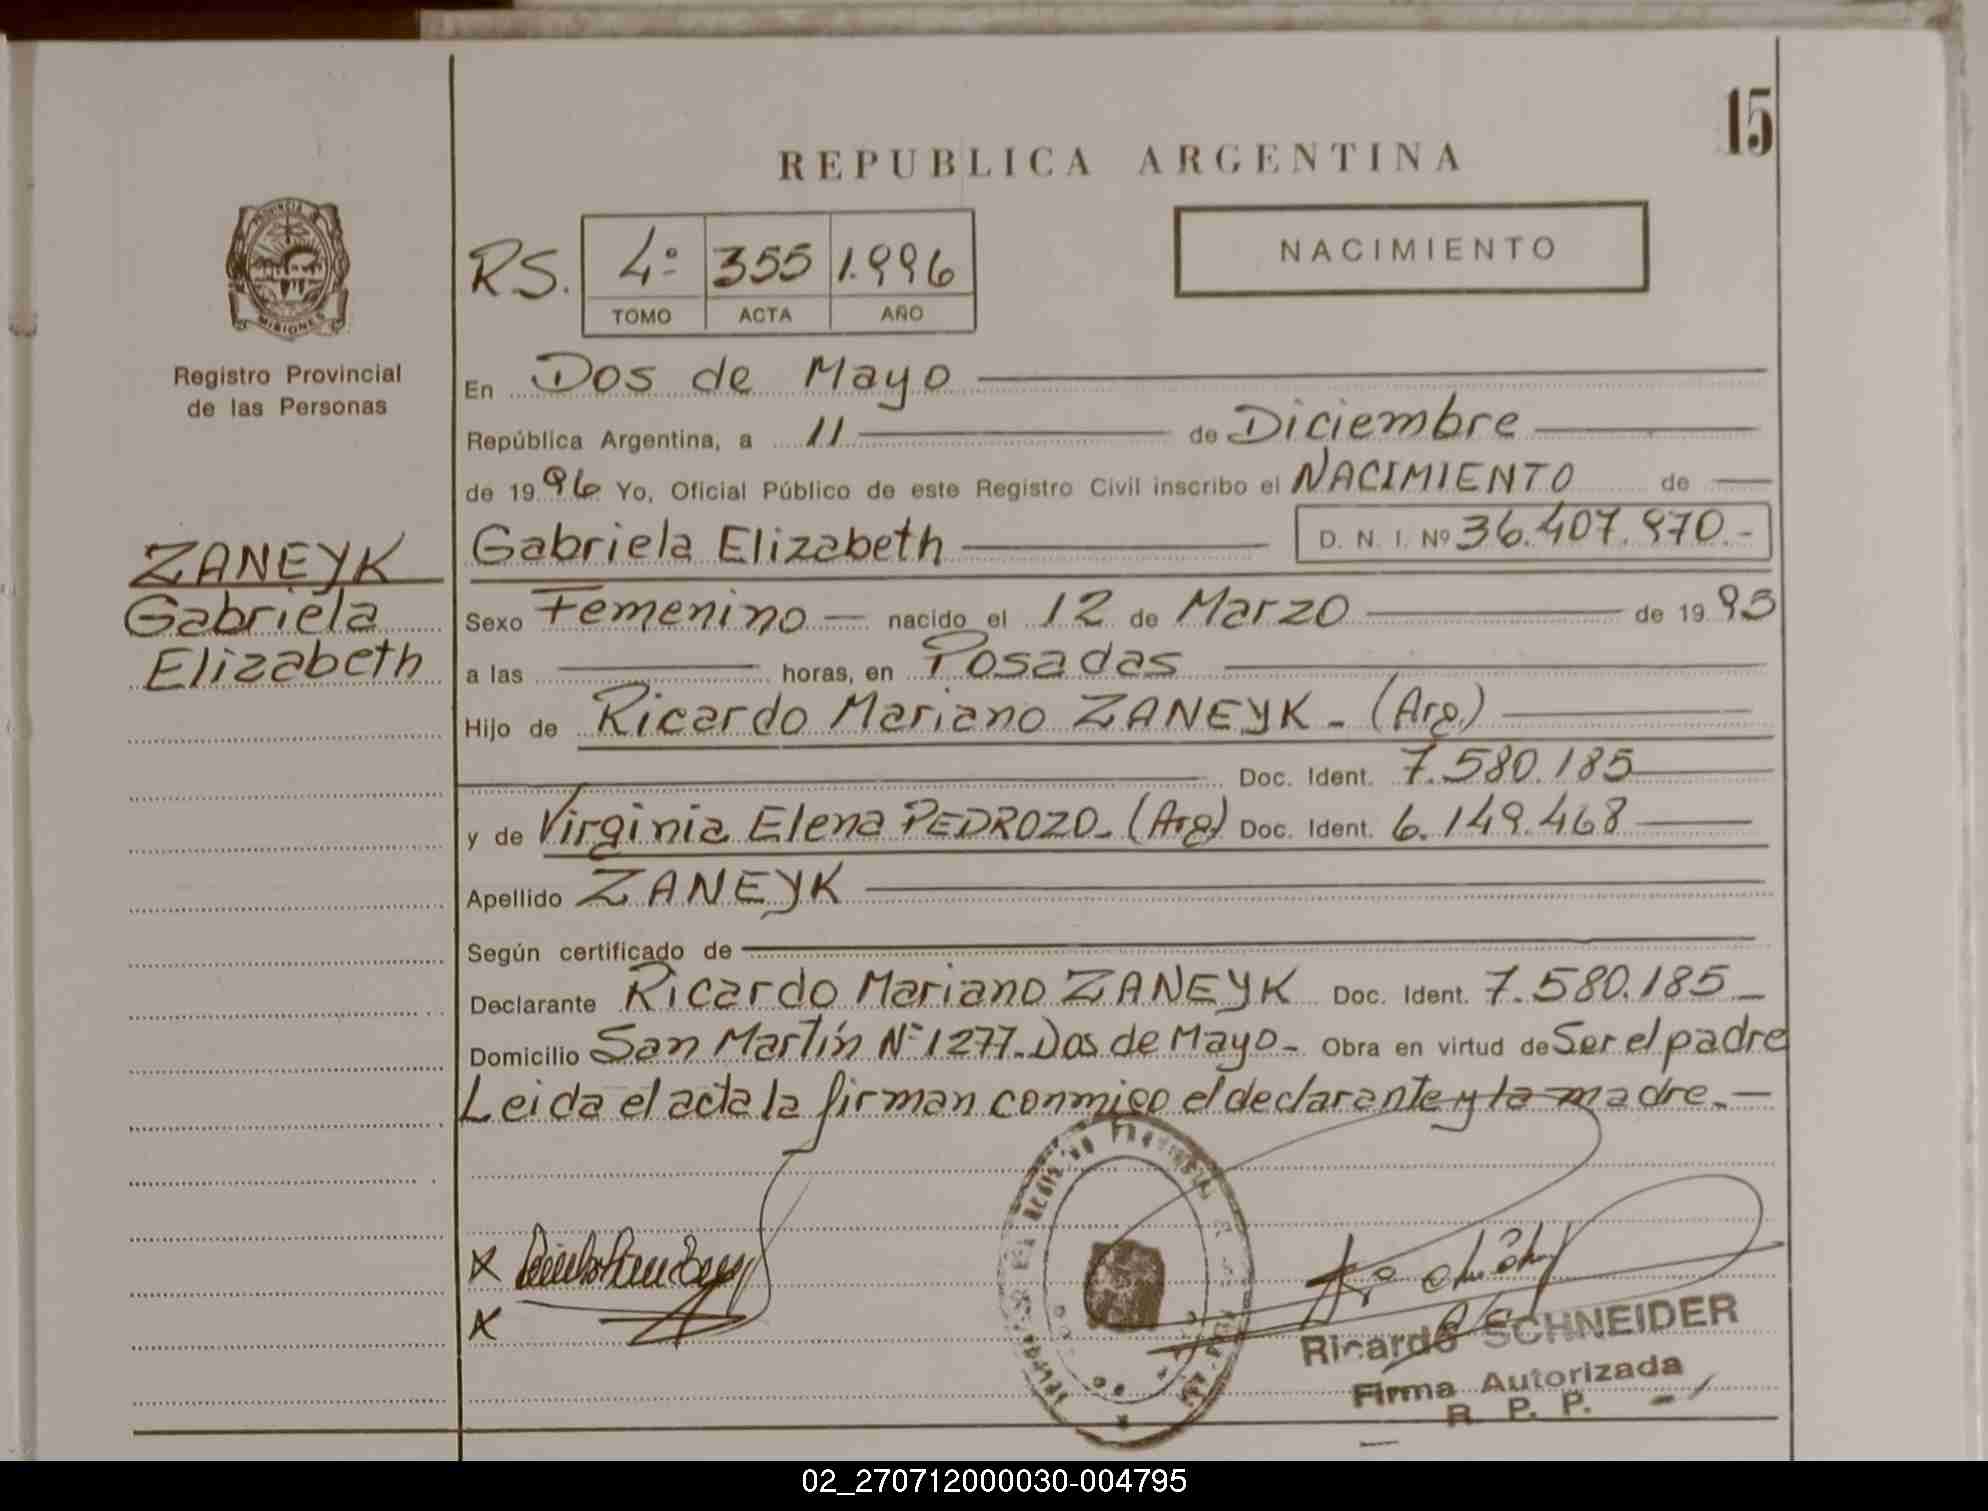 15
REPUBLICA ARGENTINA
PROVINCIA DE
MISIONES
Registro Provincial
de las Personas
RS. 4º 355 1.996
TOMO ACTA AÑO
NACIMIENTO
En Dos de Mayo
República Argentina, a 11 de Diciembre
de 1996 Yo, Oficial Público de este Registro Civil inscribo el NACIMIENTO de
ZANEYK
Gabriela
Elizabeth
Gabriela Elizabeth D. N. I. Nº 36.407.970.-
Sexo Femenino — nacido el 12 de Marzo de 1995
a las horas, en Posadas
Hijo de Ricardo Mariano ZANEYK - (Arg.)
Doc. Ident. 7.580.185
y de Virginia Elena PEDROZO - (Arg) Doc. Ident. 6.149.468
Apellido ZANEYK
Según certificado de
Declarante Ricardo Mariano ZANEYK Doc. Ident. 7.580.185
Domicilio San Martín Nº 1277 - Dos de Mayo - Obra en virtud de Ser el padre
Leida el acta la firman conmigo el declarante y la madre.-
Ricardo SCHNEIDER
Firma Autorizada
R. P. P.
02_270712000030-004795